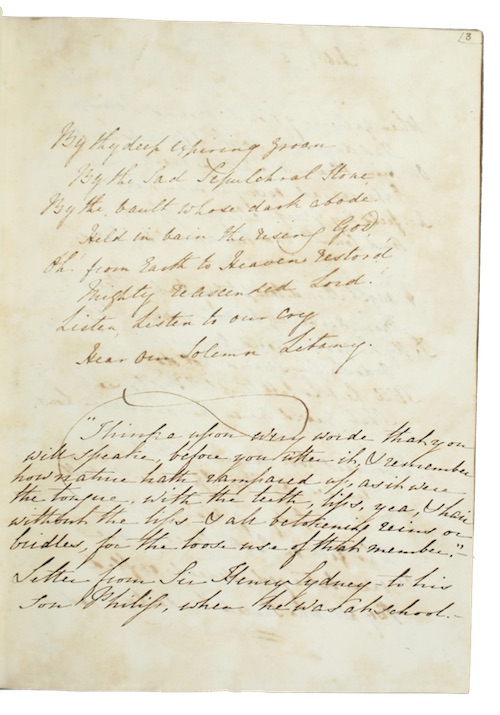 18
By thy deep expiring groan
By the sad Sepulchral Stone,
By the, vault whose dark abode
Held in vain the rising God,
Oh! from Earth to Heaven restord
Mighty reascended Lord!
Listen, Listen to our cry
Hear our Solemn Litany.
"Thinke upon every worde that you
will speake, before you utter it, & remember
how nature hath rampared up, as it were
the tongue, with the teeth, lips, yea, & hair
without the lips & all betokening reins or
bridles, for the loose use of that member."-
Letter from Sir Henry Sydney to his
son Philip, when he was at school.-